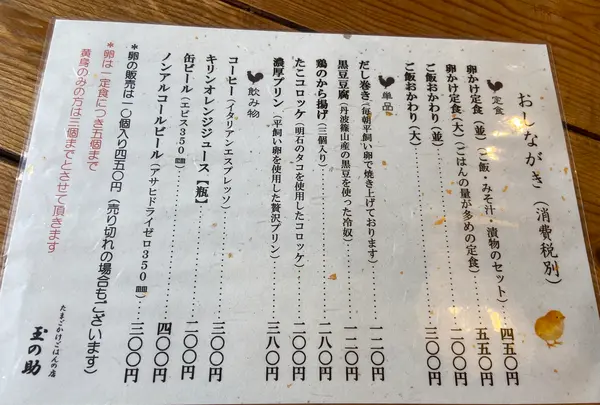 おしながき（消費税別）
定食
卵かけ定食（並）（ご飯・みそ汁・漬物のセット）…四五〇円
卵かけ定食（大）（ごはんの量が多めの定食）…五五〇円
ご飯おかわり（並）…二〇〇円
ご飯おかわり（大）…三〇〇円
単品
だし巻き（毎朝平飼い卵で焼き上げております）…一二〇円
黒豆豆腐（丹波篠山産の黒豆を使った冷奴）…一二〇円
鶏のから揚げ（三個入り）…二八〇円
たこコロッケ（明石のタコを使用したコロッケ）…二〇〇円
濃厚プリン（平飼い卵を使用した贅沢プリン）…三八〇円
飲み物
コーヒー（イタリアンエスプレッソ）…三〇〇円
キリンオレンジジュース【瓶】…二〇〇円
缶ビール（エビス350㎜）…四〇〇円
ノンアルコールビール（アサヒドライゼロ350㎜）…三〇〇円
＊卵の販売は一〇個入り四五〇円（売り切れの場合もございます）
＊卵は一定食につき五個まで
黄身のみの方は三個までとさせて頂きます
たまごかけごはんの店
玉の助